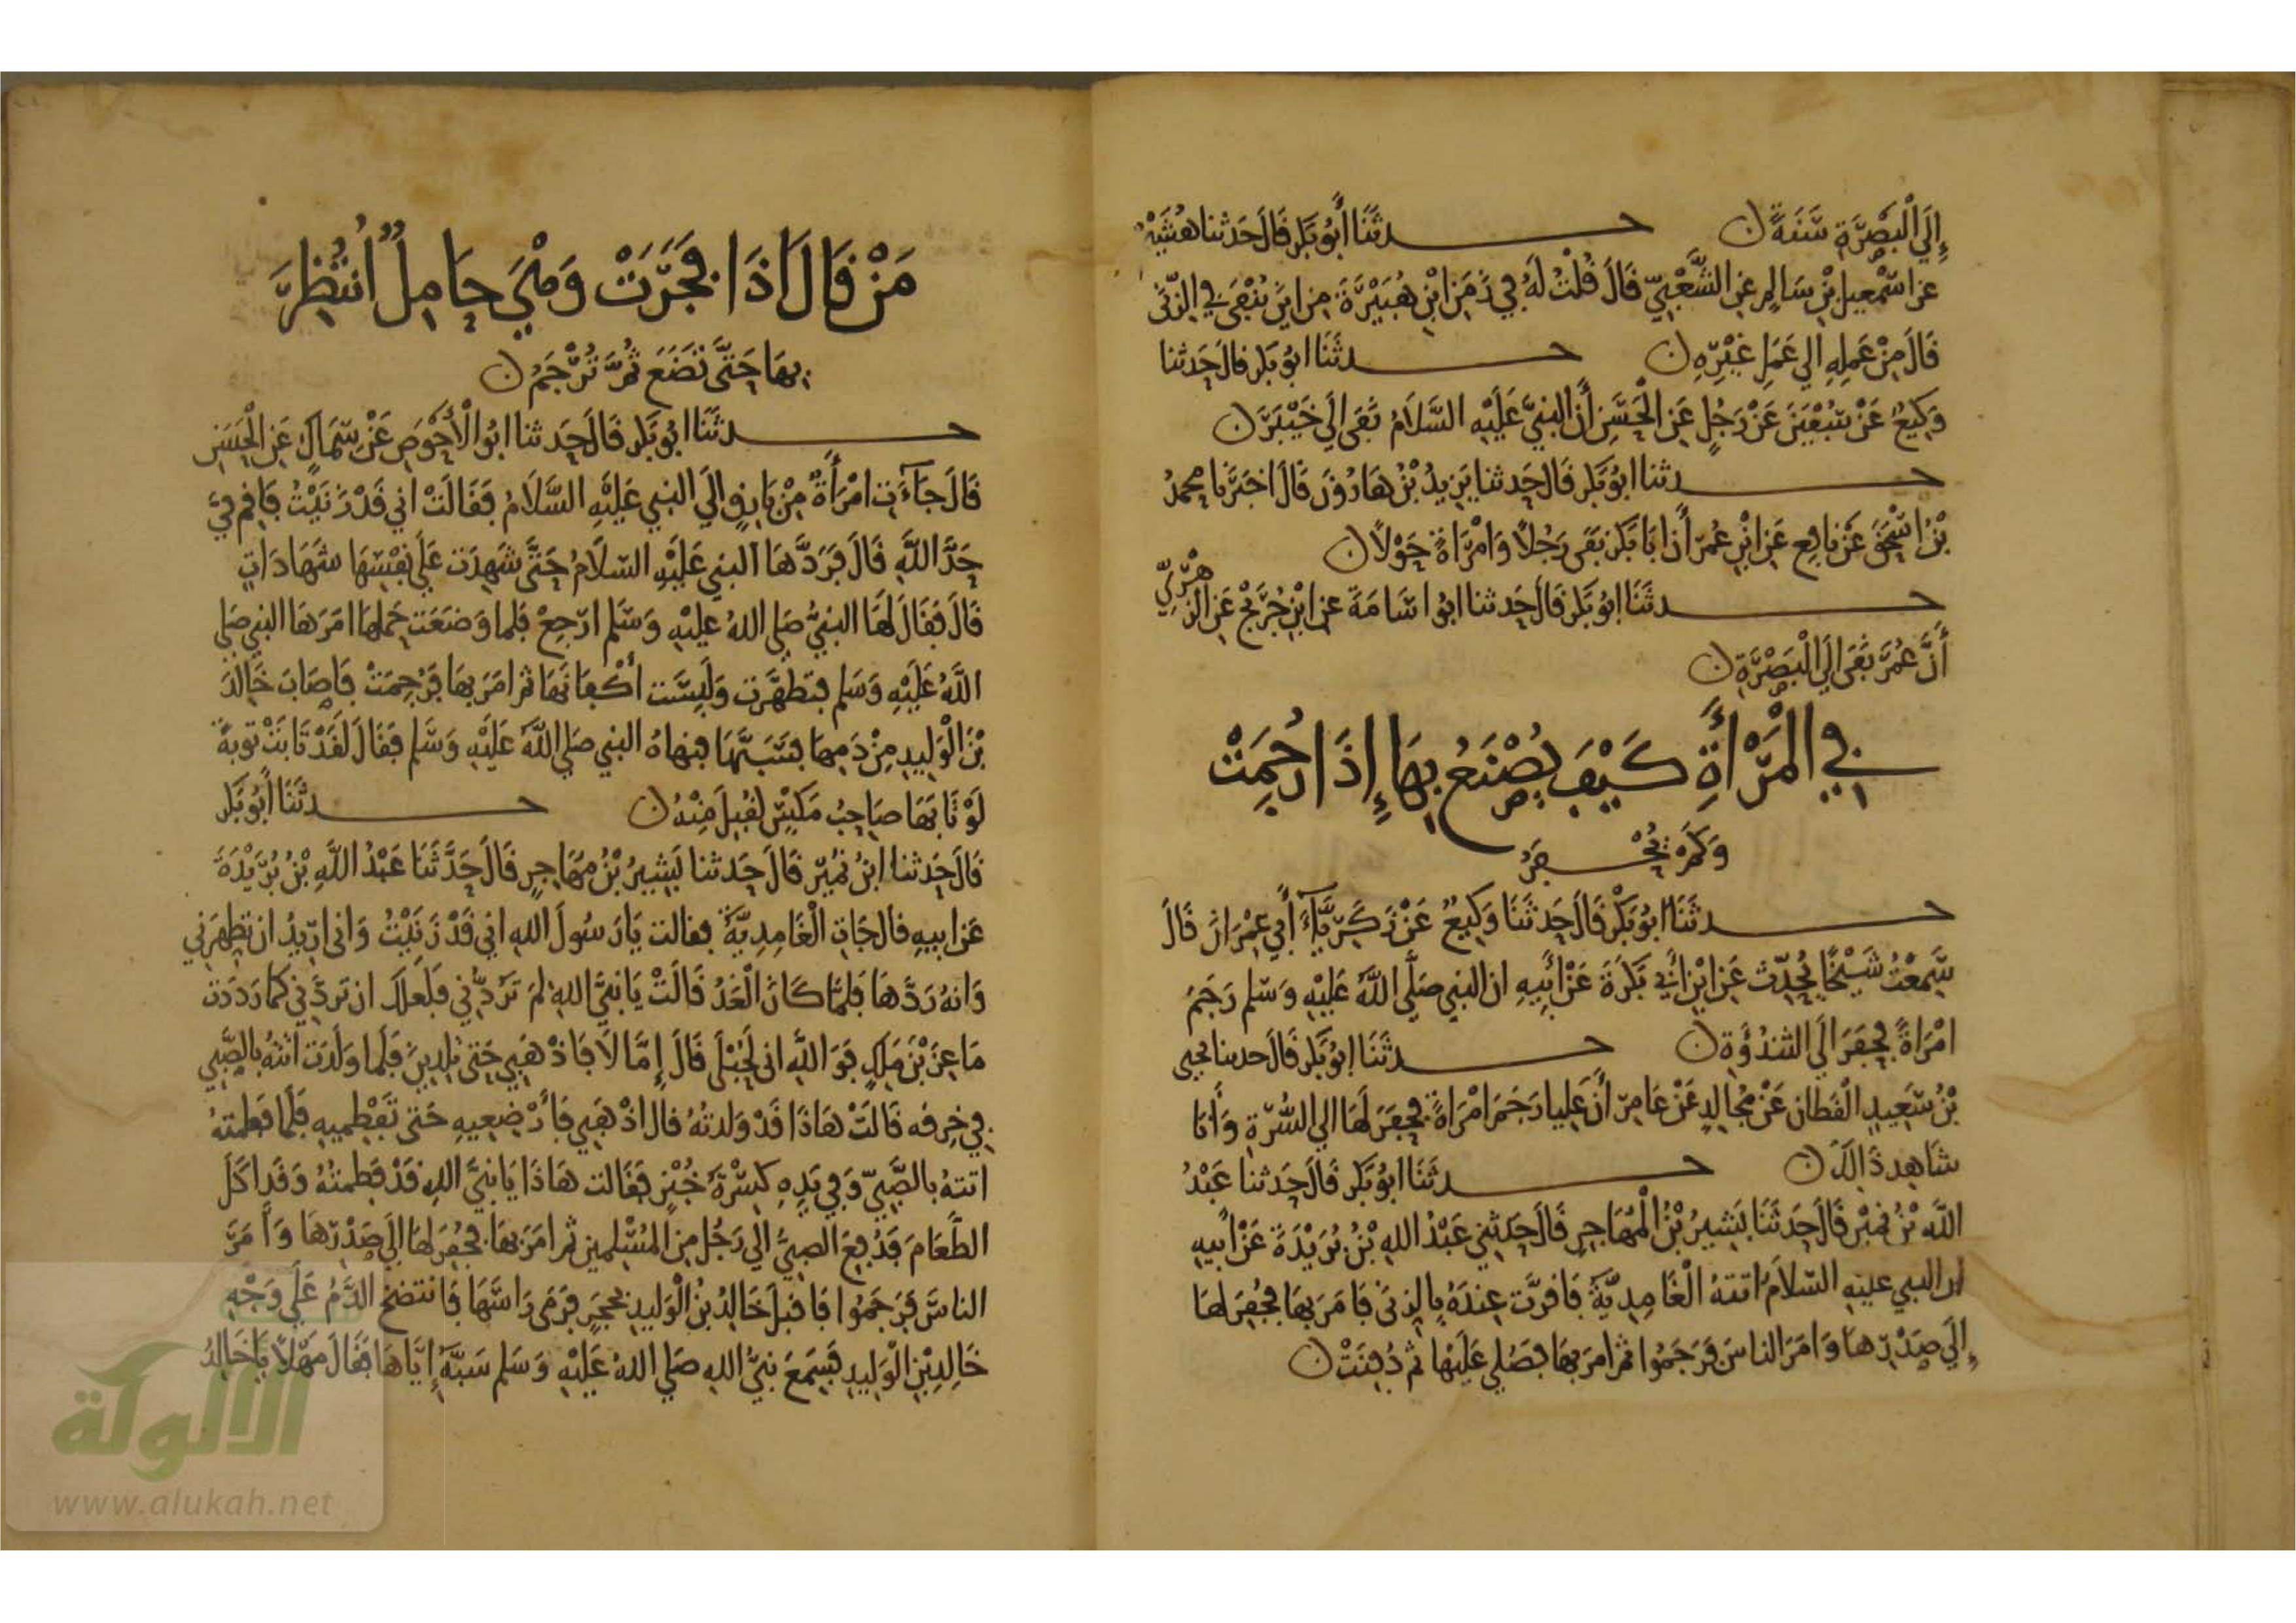 إِلَى الْبَصْرَةِ سَنَةً ن حدثَنَا أَبُو بَكر قَالَ حَدثنا هُشَيْم
عن اسْمعِيل بْنِ سَالِمٍ عَنِ الشَّعْبِيّ قَالَ قُلْتُ لَهُ فِي زَمَنِ ابْنِ هُبَيْرَةَ مِن اينَ يُنْفَى فِي الزّنَى
قَالَ مِنْ عَمَلِهِ الي عَمَلِ غَيْرِهِ ن حدثَنَا ابُو بَكر قالَ حَدثنا
وَكِيعٌ عَنْ سُفْيَنَ عَنْ رَجُلٍ عَنِ الْحَسَنِ أَن النبيَّ عَلَيْهِ السَّلَامُ نَفَى إِلَي خَيْبَرَ ن
حدثنا ابُو بَكر قَالَ حَدثنا يَزِيدُ بْنُ هَارُونَ قَالَ اخبَرَنا محمدُ
بْنُ اسْحَقَ عَنْ نَافِعٍ عَنِ ابْنِ عُمرَ أَن ابَا بَكرٍ نَفَى رَجُلاً وَامْرَاةً حَوْلاً ن
حدثَنَا ابُو بَكر قَالَ حَدثنا ابُو اسَامَةَ عن ابْنِ جُرَيْجٍ عَنِ الزهْرِيِّ
أَنَّ عُمَرَ نَفَى إلَي الْبَصْرَةِ ن
فِي الْمَرْأَةِ كَيْفَ يُصْنَعُ بِهَا إِذَا رُجِمَتْ
وَكَمْ يُحْفَرُ
حدثَنَا ابُو بَكْرٍ قَالَ حَدثَنَا وَكِيعٌ عَنْ زَكَرِيَّاءَ أَبِي عِمْرَانَ قَالَ
سَمِعْتُ شَيْخًا يُحَدِّث عَنِ ابْنِ أَبِي بَكَرَةَ عَنْ أَبِيهِ ان النبي صَلَّى اللَّهُ عَلَيْهِ وَسَلم رَجَمَ
امْرَاةً فَحَفَرَ الَي الثندُؤَةِ ن حدثَنَا ابُو بَكر قَالَ حدثنا يحيى
بْنُ سَعِيدٍ الْقَطان عَنْ مُجالِدٍ عَنْ عَامِرٍ أَنَّ عَلِيا رَجَمَ امْرَاةً فَحفَرَ لَهَا الي السُّرّةِ وَأَنَا
شَاهِد ذَالِكَ ن حدثَنَا ابُو بَكر قَالَ حَدثنا عَبْدُ
اللَّه بْنُ نُمَيْرٍ قَالَ حَدثَنَا بَشِيرُ بْنُ الْمُهَاجِرِ قَالَ حَدَثنِي عَبْدُ اللهِ بْنُ بُرَيْدَةَ عَنْ أَبيهِ
ان النبي عليه السّلَام اتتهُ الْغَامِدِيَّةُ فَاقرَّت عِندَهُ بِالزنَى فَامَرَ بهَا فَحُفِرَ لهَا
إِلَي صَدْرِهَا وَامَرَ الناسَ فَرَجَمُوا ثمَّ امَرَ بهَا فَصُلي عَلَيْهَا ثم دُفِنَتْ ن
مَنْ قَالَ اذَا فَجَرَتْ وَهْيَ حَامِلٌ انْتُظِرَ
بِهَا حَتَّى تَضَعَ ثُمَّ تُرْجَمُ ن
حدثَنَا ابُو بَكر قَالَ حَدثنا ابُو الْأَحْوَصِ عَنْ سِمَاكٍ عَنِ الْحَسَنِ
قَالَ جَآءَتِ امْرَأَةٌ مِنْ بَارِقٍ الَي النبي عَلَيْهِ السَّلَامُ فَقَالَتْ اني قَدْ زَنَيْتُ فَاقِم فِيَّ
حَدَّ اللَّهِ قَالَ فَرَدَّهَا النبي عَلَيْهِ السّلَامُ حَتَّى شَهِدَت عَلَي نفْسِهَا شَهَادَاتٍ
قَالَ فَقَالَ لَهَا النبيُّ صَلي اللهُ عليْهِ وَسَلم ارْجِعْ فلما وَضَعَت حَملهَا امَرَهَا النبي صَلي
اللَّهُ عَلَيْهِ وَسَلم فتطَهَّرَت وَلَبِسَت أكْفانَهَا ثم امَرَ بهَا فَرُجِمَتْ فَاصَابَ خَالدَ
بْنَ الْوَلِيدِ مِنْ دَمِهَا فسَبَّهَا فنهاهُ النبي صَلي اللَّهُ عَلَيْهِ وَسَلم فقَالَ لقَدْ تَابَتْ توبَةً
لَوْ تَابَهَا صَاحِبُ مَكسٍ لقُبِلَ مِنْهُ ن حدثَنَا أَبُو بَكر
قَالَ حَدثنا ابْنُ نُمَيْرٍ قَالَ حَدثنا بَشِيرُ بْنُ مُهَاجِرٍ قَالَ حَدَّثَنَا عَبْدُ اللَّهِ بْنُ بُرَيْدَةَ
عَن ابيهِ قالَ جَاتِ الْغَامِدِيَّةُ فقالت يَا رَسُولَ اللهِ اني قَدْ زَنَيْتُ وَاني ارِيدُ ان تطَهِّرَني
وَانهُ رَدَّهَا فَلمَّا كَانَ الْغَدُ قَالَتْ يَا نبيَّ اللهِ لِمَ تَرُدُّني فلَعلك ان تردَّني كمَا رَدَدت
مَاعِزَ بْنَ مَلِكٍ فَوَ اللَّهِ اني لَحُبْلَى قَالَ إِمَّا لَا فَاذْهَبِي حَتى تلِدِينَ فَلَما ولَدَت اتتْهُ بالصَّبِي
فِي خِرقه قَالَتْ هَاذَا قَدْ وَلدتُهُ قال اذْهَبِي فَأَرْضِعِيهِ حَتى تَفْطِميهِ فَلَما فَطمَتهُ
اتتهُ بالصَّبِيِّ وَفِي يَدِهِ كِسْرَةُ خُبْزٍ فقَالت هَاذَا يَا نبيَّ اللهِ قَدْ فَطمتُهُ وَقَد اكَلَ
الطَّعَامَ فَدُفِعَ الصبِيُّ الَي رَجُلٍ مِن المُسْلِمين ثم امَرَ بهَا فَحُفِرَ لهَا إلَي صَدْرِهَا وَأَمَرَ
الناسَ فَرَجَمُوا فَاقبَلَ خَالِدُ بْنُ الْوَليدِ بحجَرٍ فَرَمَى رَاسَهَا فَانتضَخَ الدَّمُ عَلَي وَجْهِ
خَالِدِ بْنِ الْوَليدِ فسَمعَ نبيُّ اللهِ صَلي اللهُ عَلَيْهِ وَسَلم سَبَّهُ إِيَّاهَا فقَالَ مَهْلاً يَا خَالِدُ
الألوكة
www.alukah.net